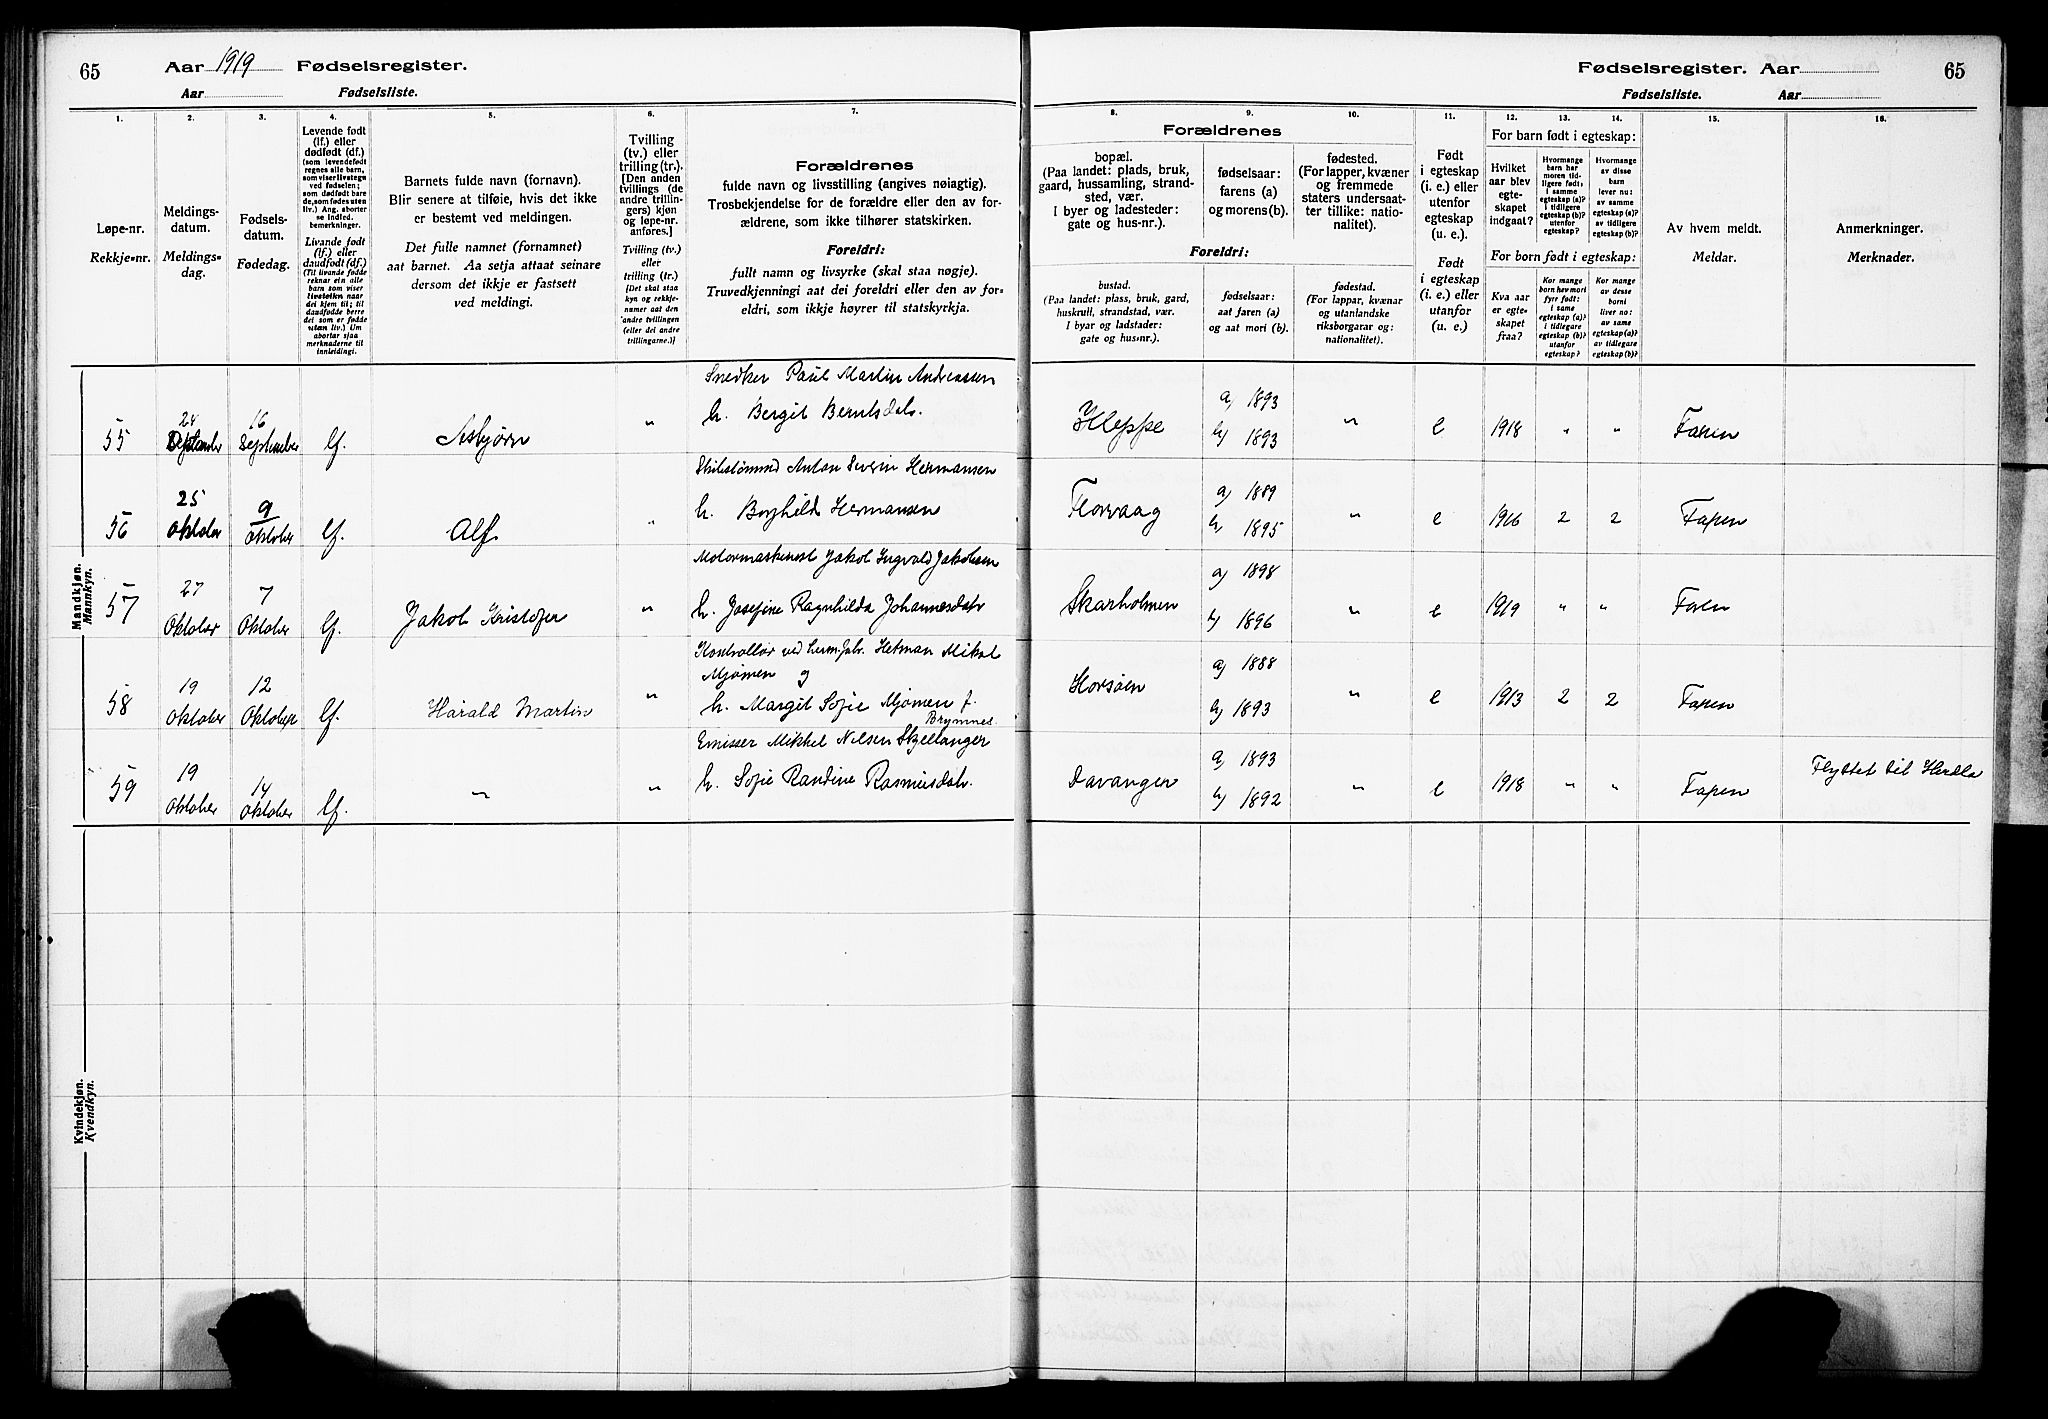 65
Aar 1919 Fødselsregister.
Aar Fødselsliste.
Fødselsregister. Aar
65
Fødselsliste. Aar
1.
Løpe-nr.
Rekkje-nr.
2.
Meldings-
datum.
Meldings-
dag.
3.
Fødsels-
datum.
Fødedag.
4.
Levende født
(lf.) eller
dødfødt (df.)
(som levendefødt
regnes alle barn,
som viser livstegn
ved fødselen;
som dødfødt bare
de, som fødes uten
liv.) Ang. aborter
se indled.
bemerkninger.
Livande født
(lf.) eller
daudfødt (df.)
(Til livande fødde
reknar ein alle
barn som viser
livsteikn naar
dei kjem til; til
daudfødde berre
dei som er fødde
utan liv.) Um
abortar sjaa
merknaderne til
innleidingi.
5.
Barnets fulde navn (fornavn).
Blir senere at tilføie, hvis det ikke
er bestemt ved meldingen.
Det fulle namnet (fornamnet)
aat barnet. Aa setja attaat seinare
dersom det ikkje er fastsett
ved meldingi.
6.
Tvilling
(tv.) eller
trilling (tr.).
[Den anden
tvillings (de
andre trillin-
gers) kjøn
og løpe-nr.
anføres.]
Tvilling (tv.)
eller
trilling (tr.)
[Det skal staa
kyn og rekkje-
numer aat den
andre tvillingen
(eller dei andre
trillingarne.)]
7.
Forældrenes
fulde navn og livsstilling (angives nøiagtig).
Trosbekjendelse for de forældre eller den av for-
ældrene, som ikke tilhører statskirken.
Foreldri:
fullt namn og livsyrke (skal staa nøgje).
Truvedkjenningi aat dei foreldri eller den av for-
eldri, som ikkje høyrer til statskyrkja.
8.
Forældrenes
bopæl.
(Paa landet: plads, bruk,
gaard, hussamling, strand-
sted, vær.
I byer og ladesteder:
gate og hus-nr.).
Foreldri:
bustad.
(Paa landet: plass, bruk, gard,
huskrull, strandstad, vær.
I byar og ladstader:
gate og hus-nr.).
9.
fødselsaar:
farens (a)
og morens (b).
fødselsaar:
aat faren (a)
og aat mori (b).
10.
fødested.
(For lapper, kvæner
og fremmede
staters undersaat-
ter tillike: natio-
nalitet).
fødestad.
(For lappar, kvænar
og utanlandske
riksborgarar og:
nationalitet).
11.
Født
i egteskap
(i. e.) eller
utenfor
egteskap
(u. e.).
Født
i egteskap
(i. e.) eller
utanfor
(u. e.)
For barn født i egteskap:
12.
Hvilket
aar blev
egte-
skapet
indgaat?
For born født i egteskap:
Kva aar
er egte-
skapet
fraa?
13.
Hvormange
barn har
moren tid-
ligere født:
i samme
egteskap (a)?
i tidligere
egteskap (b)?
utenfor
egteskap?
Kor mange
born hev mori
fyrr født:
i same
egteskap (a)?
i tidlegare
egteskap (b)?
utanfor
egteskap?
14.
Hvormange
av disse
barn
lever nu:
av samme
egteskap (a)?
av tidligere
egteskap (b)?
Kor mange
av desse
borni
liver no:
av same
egteskap (a)?
av tidlegare
egteskap (b)?
15.
Av hvem meldt.
Meldar.
16.
Anmerkninger.
Merknader.
Mandkjøn.
Mannkyn.
Kvindekjøn.
Kvendkyn.
55 24 September 16 September lf. Asbjørn " Snedker Paul Martin Andreassen
h. Bergit Berntsdatr. Kleppe a) 1893 b) 1893 " e 1918 " " Faren
56 25 Oktober 9 Oktober lf. Alf " Anton Severin Hermansen
h. Borghild Hermansen Florvaag a) 1889 b) 1895 " e 1916 2 2 Faren
57 27 Oktober 7 Oktober lf. Jakob Kristofer " Motormaskinist Jakob Ingvald Jakobsen
h. Josefine Ragnhilda Johannesdatr Skarholmen a) 1898 b) 1896 " e 1919 " " Faren
58 19 Oktober 12 Oktober lf. Harald Martin " Kontrollør ved herm.fabr. Herman Mikal
Mjømen og
h. Margit Sofie Mjømen f.
Brymnes. Horsøen a) 1888 b) 1893 " e 1913 2 2 Faren
59 19 Oktober 14 Oktober lf. " " Emissær Mikkel Nilsen Skjellanger
h. Sofie Randine Rasmusdatr. Davanger a) 1893 b) 1892 " e 1918 " " Faren Flyttet til Herdla